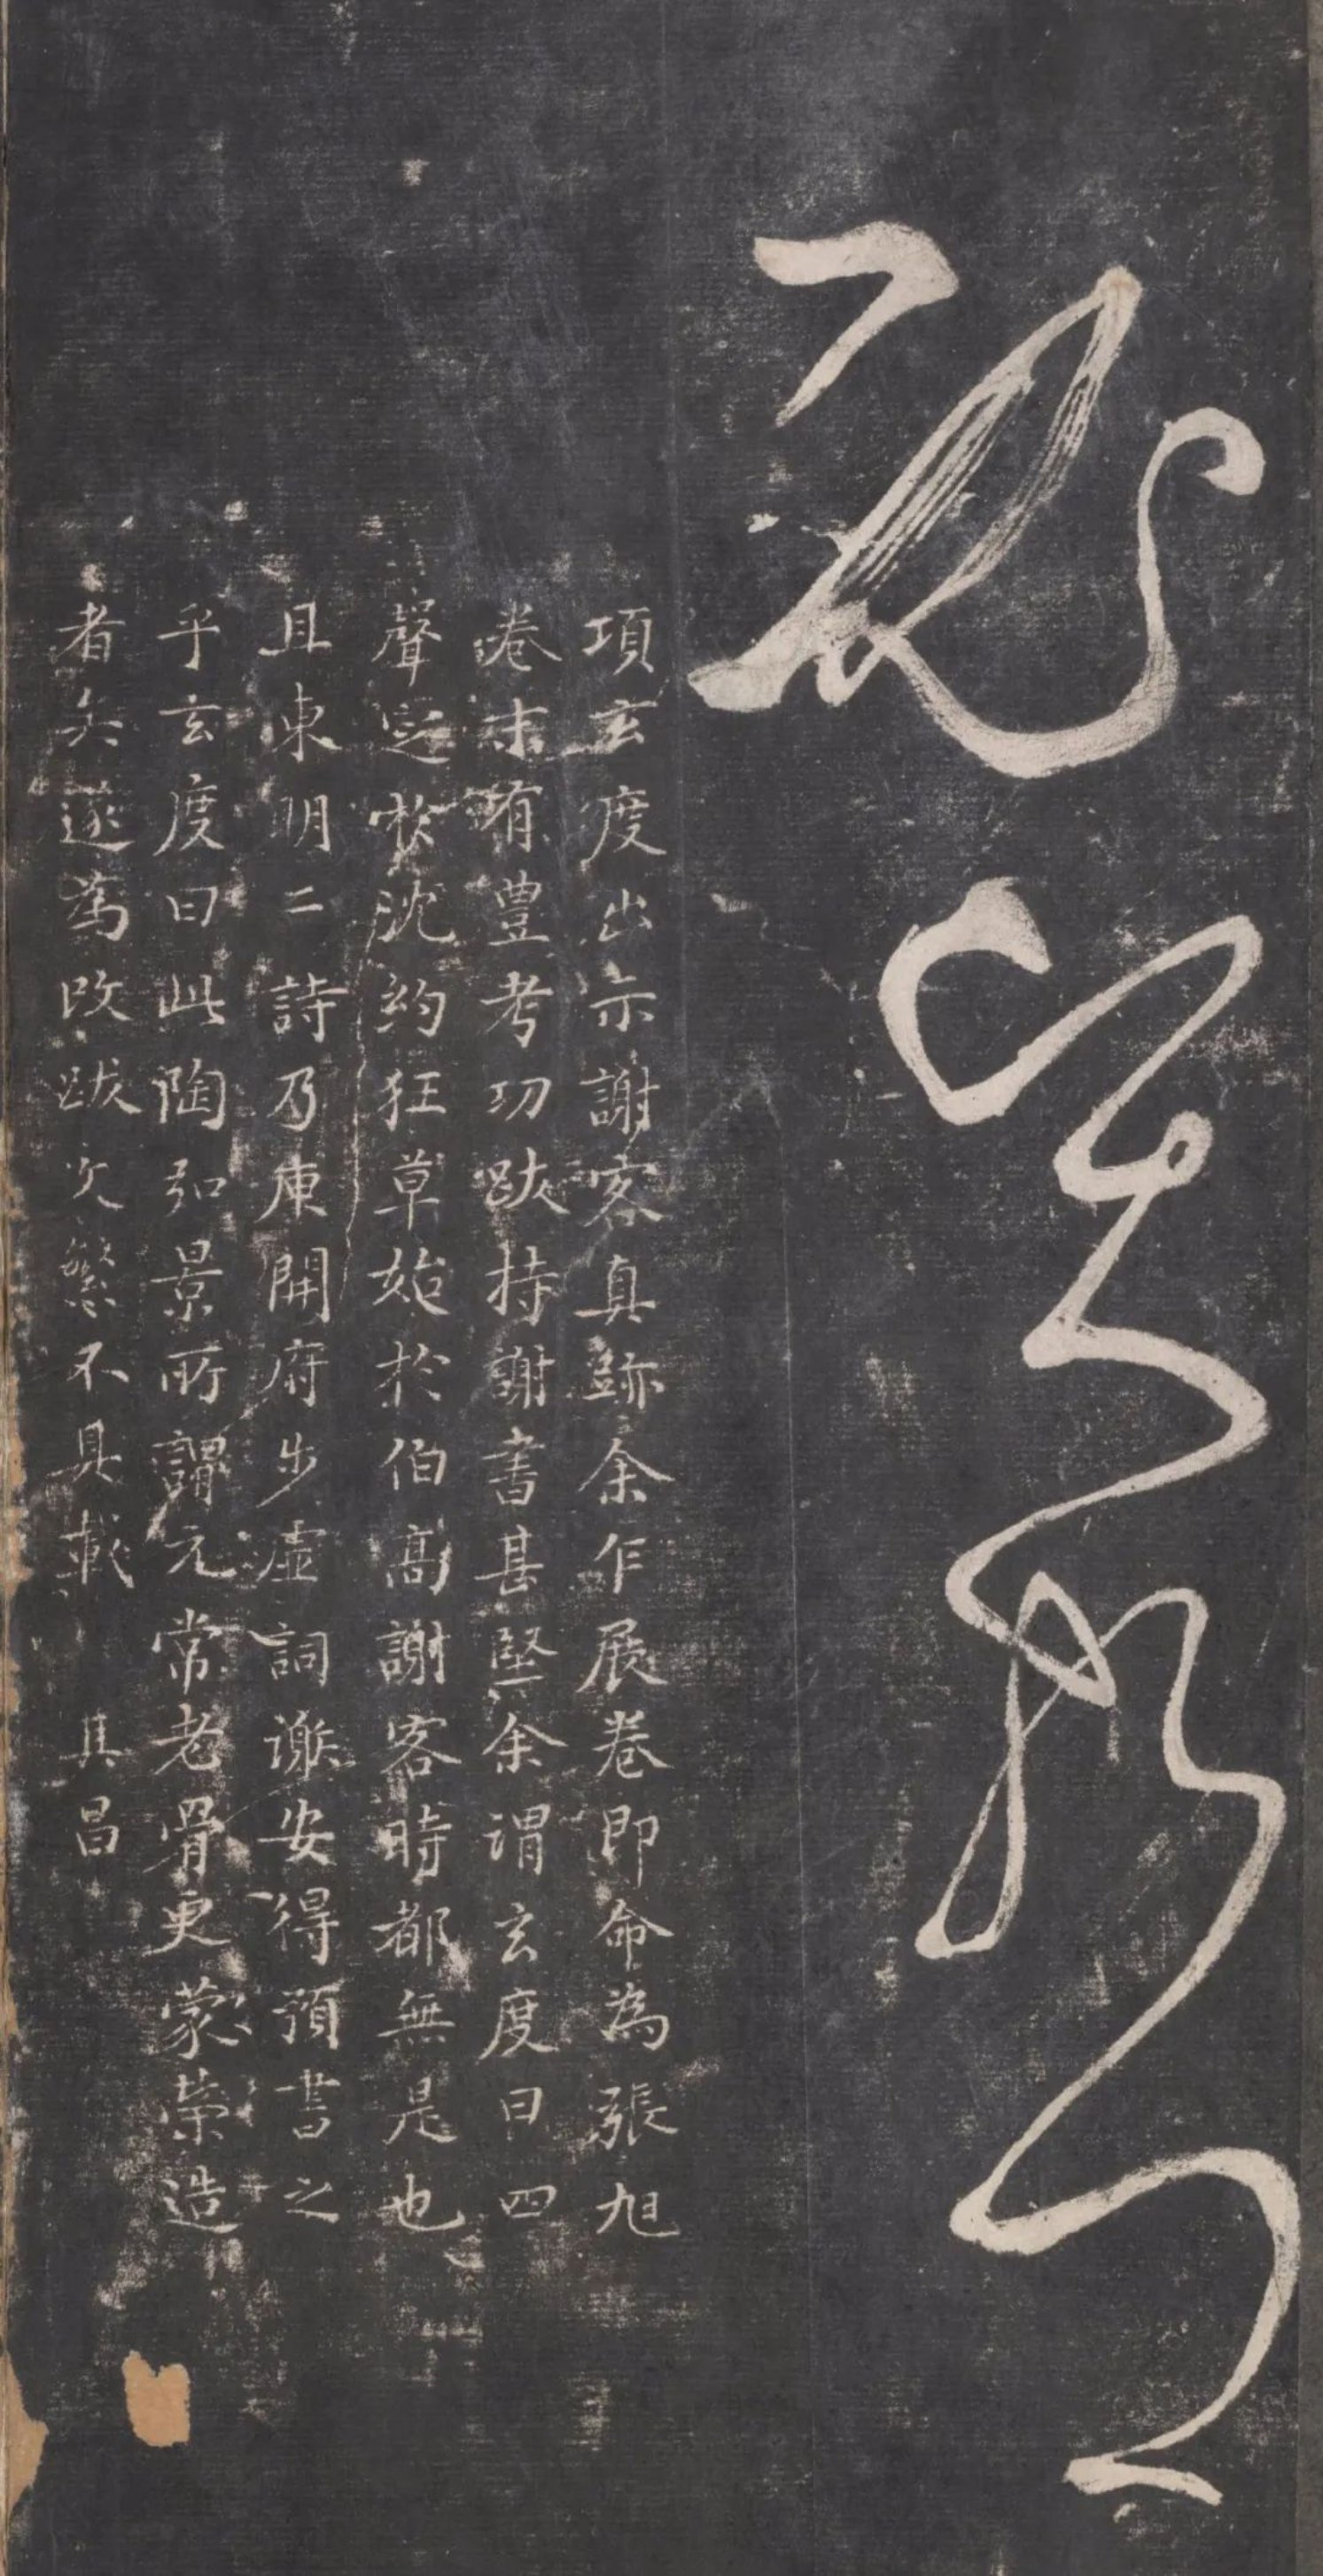 項玄度出示謝客真跡余乍展卷即命為張旭
卷末有豐考功跋持謝書甚堅余謂玄度曰四
聲定於沈約狂草始於伯高謝客時都無是也
且東明二詩乃庾開府步虛詞謝安得預書之
乎玄度曰此陶弘景所謂元常老骨更蒙榮造
者矣遂為改跋文繁不具載 其昌